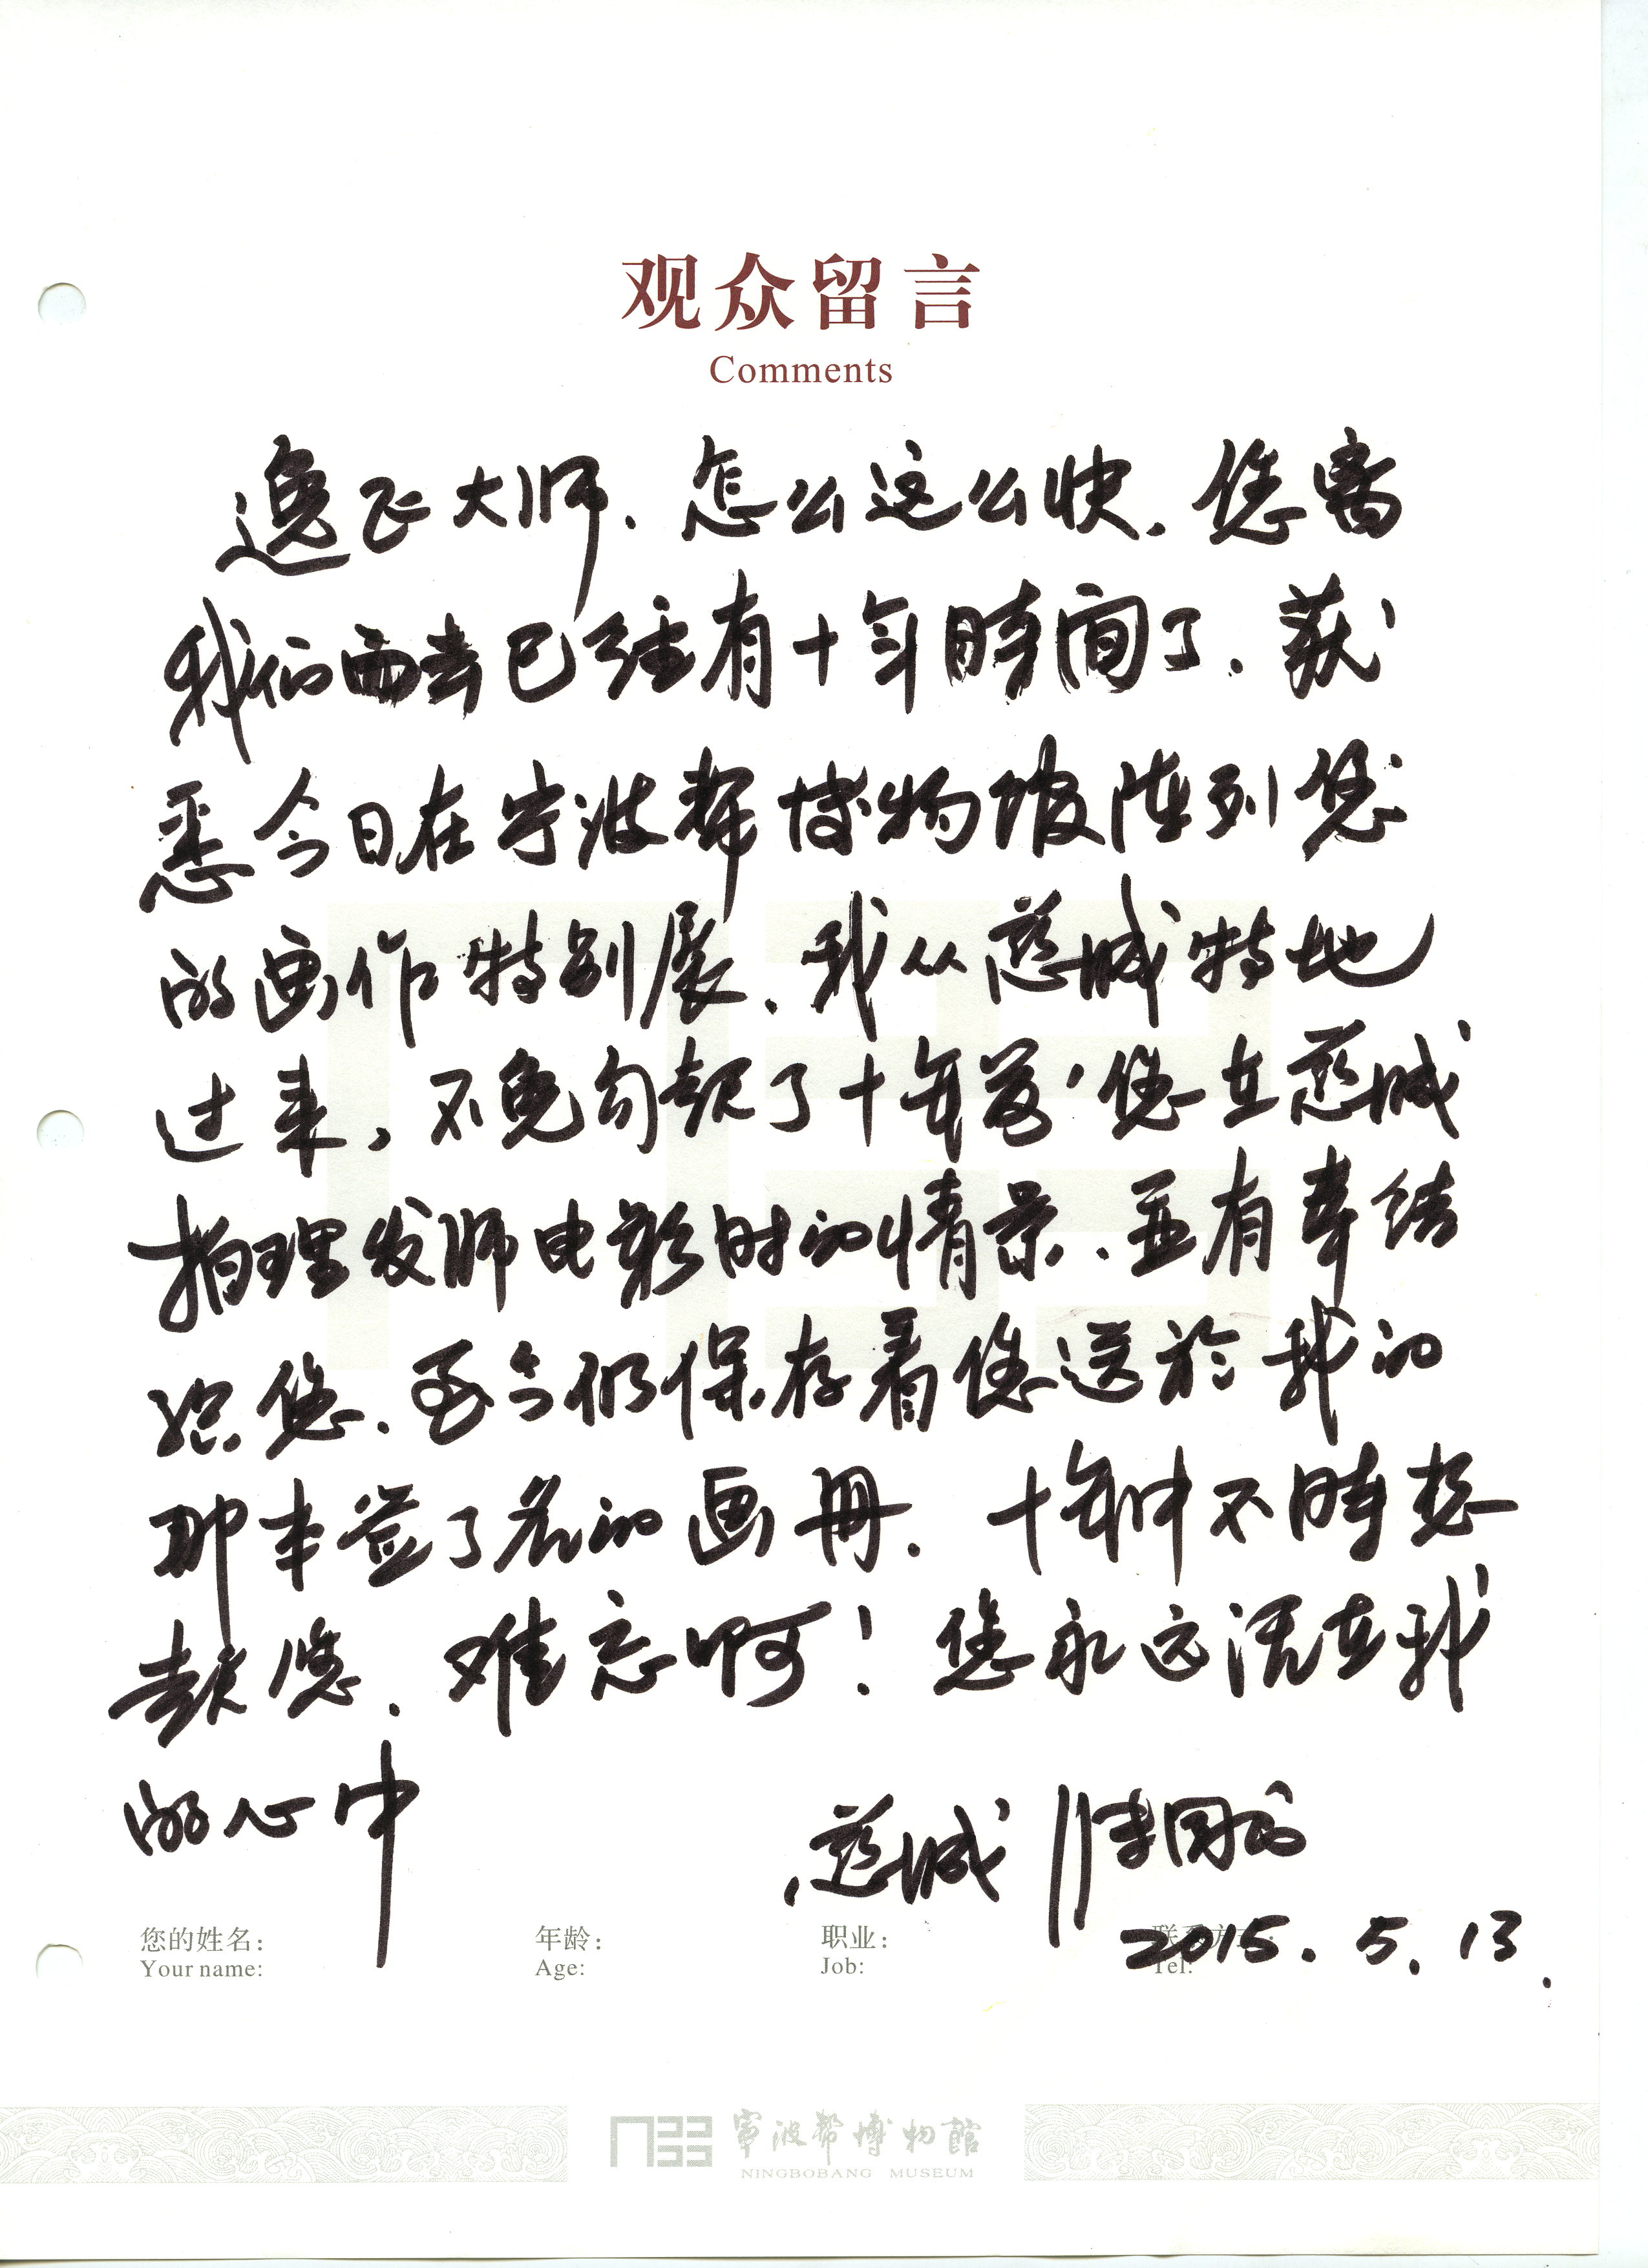 观众留言
Comments
逸飞大师、怎么这么快.您离
我们而去已经有十年時间了.获
悉今日在宁波帮博物馆陈列您
的画作特别展.我从慈城特地
过来,不免勾起了十年前,您在慈城
拍理发师电影时的情景.并有幸结
识您.至今仍保存着您送於我的
那本签了名的画册.十年中不時想
起您.难忘啊!您永远活在我
的心中
慈城
2015.5.13.
您的姓名: 年龄: 职业:
Your name: Age: Job: Tel:
寧波幫博物館
NINGBOBANG MUSEUM